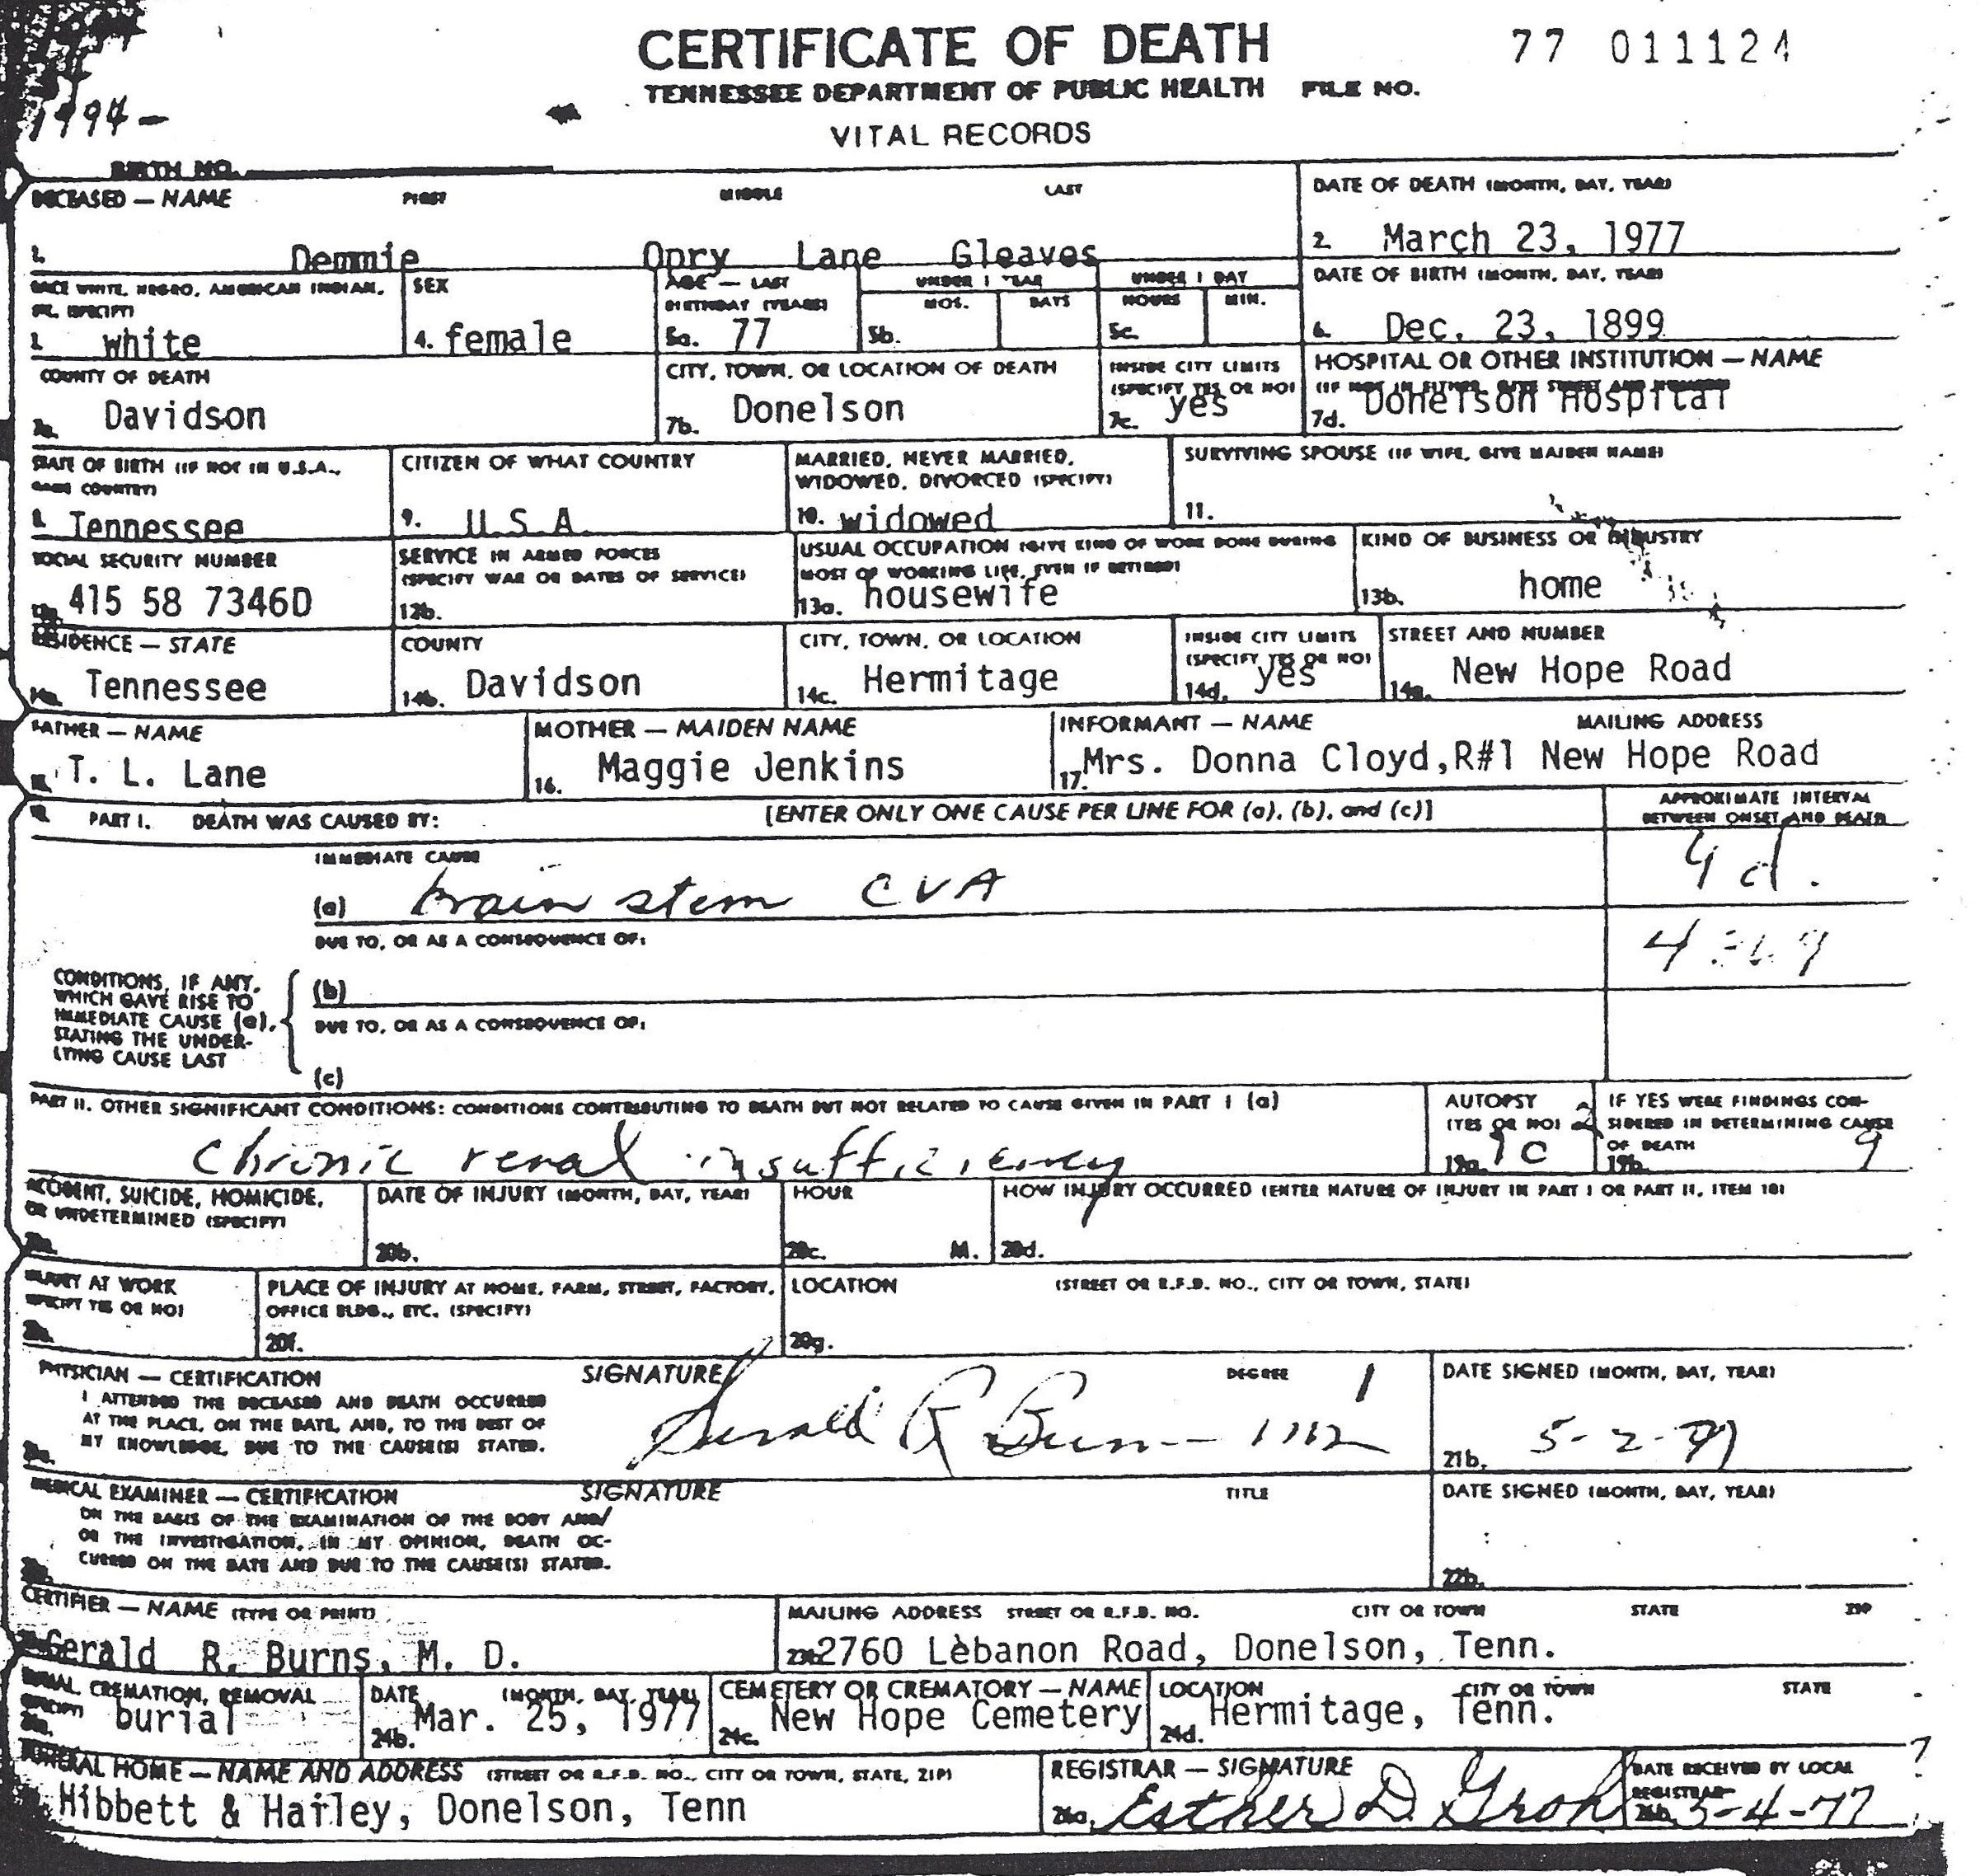 CERTIFICATE OF DEATH 77 011124
TENNESSEE DEPARTMENT OF PUBLIC HEALTH FILE NO.
VITAL RECORDS
BIRTH NO.
DECEASED — NAME FIRST MIDDLE LAST DATE OF DEATH (MONTH, DAY, YEAR)
1. Demmie Opry Lane Gleaves 2. March 23, 1977
RACE WHITE, NEGRO, AMERICAN INDIAN, ETC. (SPECIFY) SEX AGE — LAST BIRTHDAY (YEARS) UNDER 1 YEAR UNDER 1 DAY DATE OF BIRTH (MONTH, DAY, YEAR)
MOS. DAYS HOURS MIN.
3. white 4. female 5a. 77 5b. 5c. 6. Dec. 23, 1899
COUNTY OF DEATH CITY, TOWN, OR LOCATION OF DEATH INSIDE CITY LIMITS (SPECIFY YES OR NO) HOSPITAL OR OTHER INSTITUTION — NAME (IF NOT IN EITHER, GIVE STREET AND NUMBER)
7a. Davidson 7b. Donelson 7c. yes 7d. Donelson Hospital
STATE OF BIRTH (IF NOT IN U.S.A., NAME COUNTRY) CITIZEN OF WHAT COUNTRY MARRIED, NEVER MARRIED, WIDOWED, DIVORCED (SPECIFY) SURVIVING SPOUSE (IF WIFE, GIVE MAIDEN NAME)
8. Tennessee 9. U.S.A. 10. widowed 11.
SOCIAL SECURITY NUMBER SERVICE IN ARMED FORCES (SPECIFY WAR OR DATES OF SERVICE) USUAL OCCUPATION (GIVE KIND OF WORK DONE DURING MOST OF WORKING LIFE, EVEN IF RETIRED) KIND OF BUSINESS OR INDUSTRY
415 58 7346D 12b. 13a. housewife 13b. home
RESIDENCE — STATE COUNTY CITY, TOWN, OR LOCATION INSIDE CITY LIMITS (SPECIFY YES OR NO) STREET AND NUMBER
14a. Tennessee 14b. Davidson 14c. Hermitage 14d. yes 14e. New Hope Road
FATHER — NAME MOTHER — MAIDEN NAME INFORMANT — NAME MAILING ADDRESS
15. T. L. Lane 16. Maggie Jenkins 17. Mrs. Donna Cloyd,R#1 New Hope Road
18. PART I. DEATH WAS CAUSED BY: [ENTER ONLY ONE CAUSE PER LINE FOR (a), (b), and (c)] APPROXIMATE INTERVAL BETWEEN ONSET AND DEATH
IMMEDIATE CAUSE
(a) brain stem CVA 4 d.
DUE TO, OR AS A CONSEQUENCE OF:
CONDITIONS, IF ANY, WHICH GAVE RISE TO IMMEDIATE CAUSE (a), STATING THE UNDERLYING CAUSE LAST
(b)
DUE TO, OR AS A CONSEQUENCE OF:
(c)
PART II. OTHER SIGNIFICANT CONDITIONS: CONDITIONS CONTRIBUTING TO DEATH BUT NOT RELATED TO CAUSE GIVEN IN PART I (a) AUTOPSY (YES OR NO) 2 IF YES WERE FINDINGS CONSIDERED IN DETERMINING CAUSE OF DEATH
chronic renal insufficiency 19a. 19b. 9
ACCIDENT, SUICIDE, HOMICIDE, OR UNDETERMINED (SPECIFY) DATE OF INJURY (MONTH, DAY, YEAR) HOUR HOW INJURY OCCURRED (ENTER NATURE OF INJURY IN PART I OR PART II, ITEM 18)
20a. 20b. 20c. M. 20d.
INJURY AT WORK (SPECIFY YES OR NO) PLACE OF INJURY AT HOME, FARM, STREET, FACTORY, OFFICE BLDG., ETC. (SPECIFY) LOCATION (STREET OR R.F.D. NO., CITY OR TOWN, STATE)
20e. 20f. 20g.
PHYSICIAN — CERTIFICATION SIGNATURE DEGREE 1 DATE SIGNED (MONTH, DAY, YEAR)
I ATTENDED THE DECEASED AND DEATH OCCURRED
AT THE PLACE, ON THE DATE, AND, TO THE BEST OF
MY KNOWLEDGE, DUE TO THE CAUSE(S) STATED.
21a. Gerald R Burns MD 21b. 5-2-77
MEDICAL EXAMINER — CERTIFICATION SIGNATURE TITLE DATE SIGNED (MONTH, DAY, YEAR)
ON THE BASIS OF THE EXAMINATION OF THE BODY AND/
OR THE INVESTIGATION, IN MY OPINION, DEATH OC-
CURRED ON THE DATE AND DUE TO THE CAUSE(S) STATED.
22a. 22b.
CERTIFIER — NAME (TYPE OR PRINT) MAILING ADDRESS STREET OR R.F.D. NO. CITY OR TOWN STATE ZIP
Gerald R. Burns, M. D. 23b. 2760 Lebanon Road, Donelson, Tenn.
BURIAL, CREMATION, REMOVAL (SPECIFY) DATE (MONTH, DAY, YEAR) CEMETERY OR CREMATORY — NAME LOCATION CITY OR TOWN STATE
24a. burial 24b. Mar. 25, 1977 24c. New Hope Cemetery 24d. Hermitage, Tenn.
FUNERAL HOME — NAME AND ADDRESS (STREET OR R.F.D. NO., CITY OR TOWN, STATE, ZIP) REGISTRAR — SIGNATURE DATE RECEIVED BY LOCAL REGISTRAR
Hibbett & Hailey, Donelson, Tenn 26a. Esther D. Groh 26b. 5-4-77